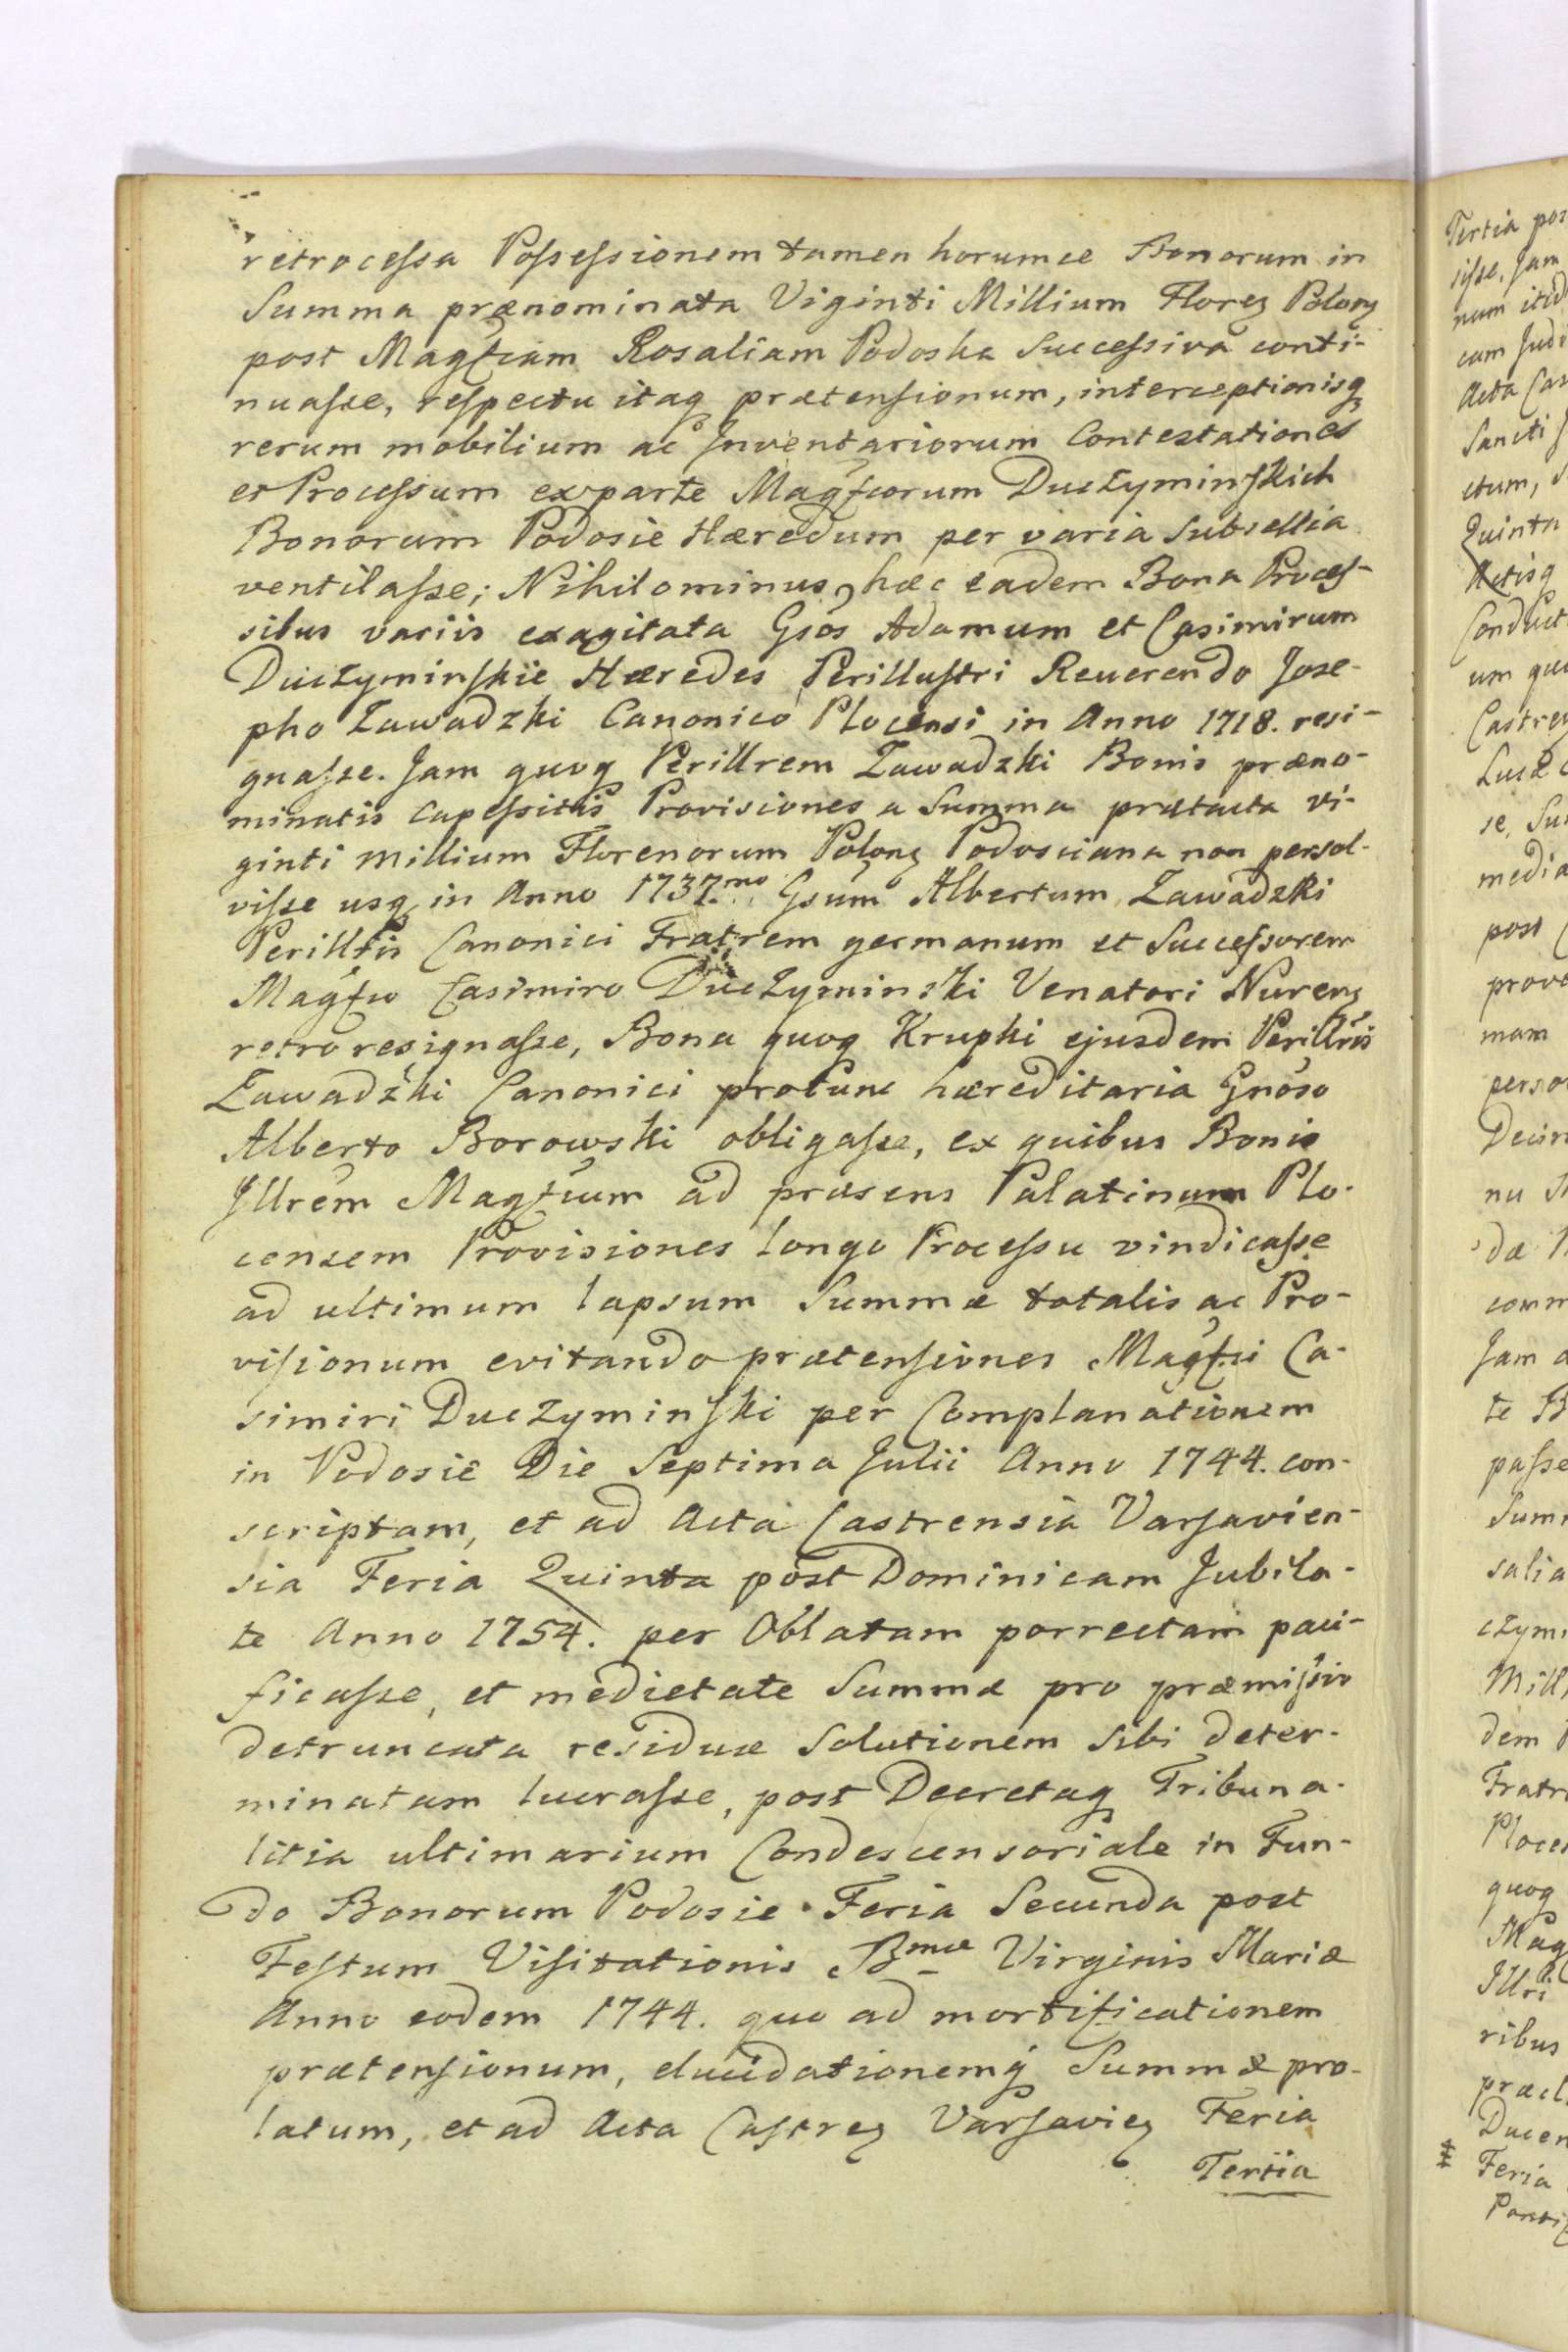 retrocessa Possessionem tamen horumce Bonorum in
Summa prænominata Viginti Millium Florez Polonz
post Magfcam Rosaliam Podoska Successivâ conti-
nuasse, respectu itaq prætensionum, interceptionisq
rerum mobilium ac Inventariorum Contestationes
et Processum ex parte Magfcorum Duczyminskich
Bonorum Podosie Hæredum per varia Subsellia
ventilasse; Nihilominus hæc eadem Bona Proces-
sibus variis exagitata Gsos Adamum et Casimirum
Duczyminskie Hæredes Perillustri Reverendo Jose-
pho Zawadzki Canonico Plocensi in Anno 1718. resi-
gnasse. Jam quoq Perillrem Zawadzki Bonis præno-
minatis capessitis Provisiones a Summa prætacta vi-
ginti millium Florenorum Polonz Podosciana non persol-
visse usq in Anno 1737.mo Gsum Albertum Zawadzki
Perilltis Canonici Fratrem germanum et Successorem
Magfco Casimiro Duczyminski Venatori Nurenz
retro resignasse, Bona quoq Krupki ejusdem Perillris
Zawadzki Canonici protunc hæreditaria Gnoso
Alberto Borowski obligasse, ex quibus Bonis
Illrem Magfcum ad præsens Palatinum Plo-
censem Provisiones longo Processu vindicasse
ad ultimum lapsum Summæ totalis ac Pro-
visionum evitando prætensiones Magfci Ca-
simiri Duczyminski per Complanationem
in Podosie Die Septima Julii Anno 1744. con-
scriptam, et ad Acta Castrensia Varsavien-
sia Feria Quinta post Dominicam Jubila-
te Anno 1754. per Oblatam porrectam paci-
ficasse, et medietate Summæ pro præmissis
detruncata residuæ Solutionem sibi deter-
minatam lucrasse, post Decretaq Tribuna-
litia ultimarium Condescensoriale in Fun-
do Bonorum Podosie Feria Secunda post
Festum Visitationis Bmæ Virginis Mariæ
Anno eodem 1744. quo ad mortificationem
prætensionum, elucidationemq Summæ pro-
latum, et ad Acta Castrez Varsaviez Feria
Tertia
Tertia
sisse. Jam
num
cum
Acta
Sancti
ctum,
Quinta
Actisq
um
se,
media
post
mam
nu
Jam
te
passe
salia
dem
quoq
Illri
ribus
Feria